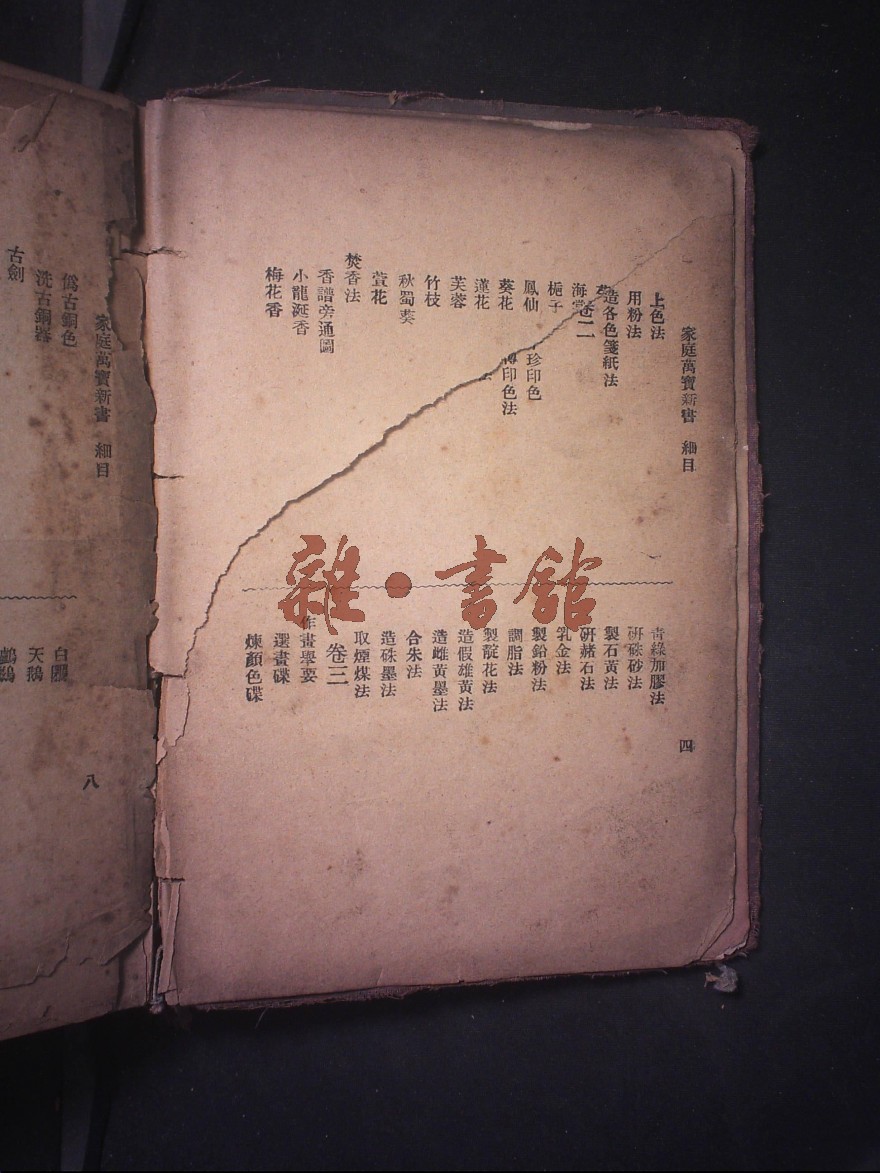 家庭萬寶新書 細目
四
上色法
用粉法
造各色箋紙法
卷二
海棠
梔子
鳳仙
珍印色
葵花
印色法
蓮花
法
芙蓉
竹枝
秋蜀葵
萱花
焚香法
香譜旁通圖
小龍涎香
梅花香
青綠加膠法
研硃砂法
製石黃法
研赭石法
乳金法
製鉛粉法
調脂法
製靛花法
造假雄黃法
造雌黃墨法
合朱法
造硃墨法
取煙煤法
卷三
作畫舉要
選畫碟
煉顏色碟
家庭萬寶新書 細目
八
偽古銅色
洗古銅器
古劍
白鷳
天鵝
雜·書館